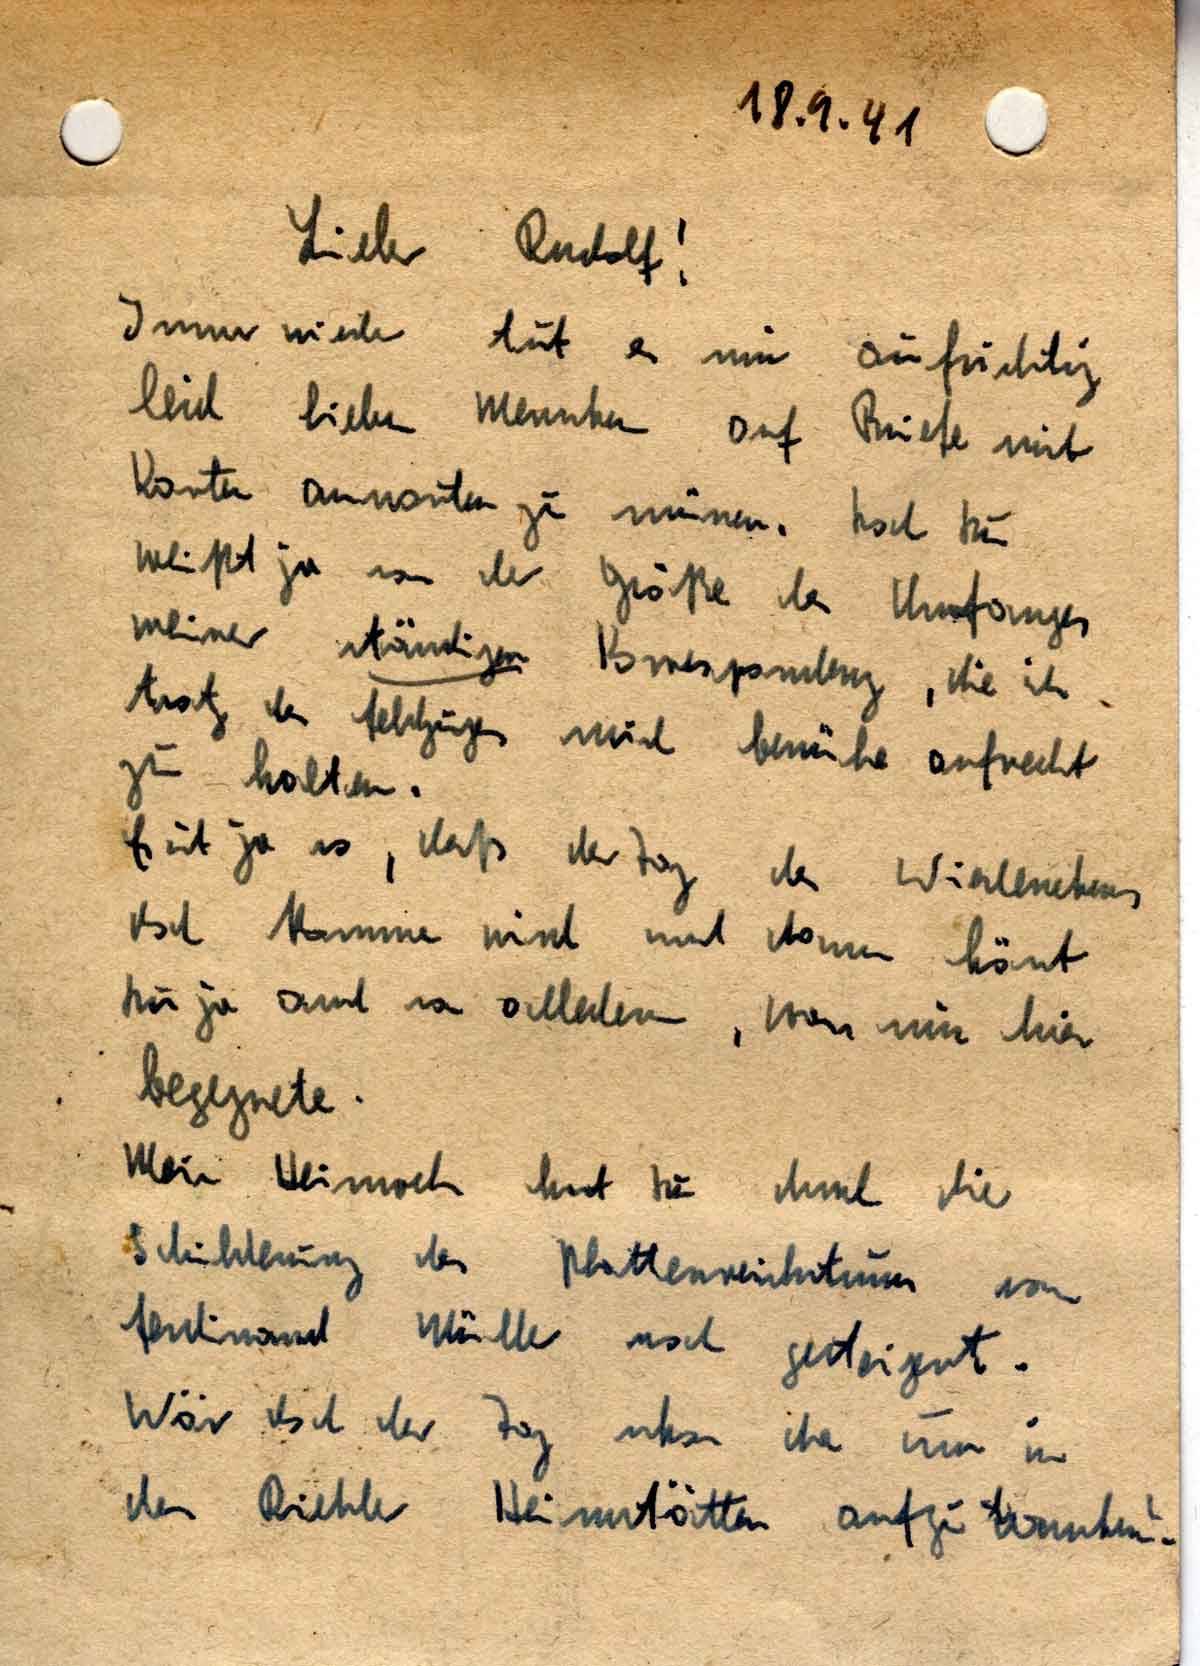 18.9.41
Lieber Rudolf!
Immer wieder tut es mir aufrichtig
leid lieben Menschen auf Briefe mit
Karten antworten zu müssen. Doch Du
weißt ja von der Größe des Umfanges
meiner ständigen Korrespondenz, die ich
trotz des Feldzuges mich bemühe aufrecht
zu halten.
Gut ja so, daß der Tag des Wiedersehens
doch kommen wird und dann hörst
Du ja auch von alledem, was mir hier
begegnete.
Mein Heimweh hast Du durch die
Schilderung des Plattenreichtums von
Ferdinand Müller noch gesteigert.
Wär doch der Tag schon da um in
den Riehler Heimstätten aufzutauchen!